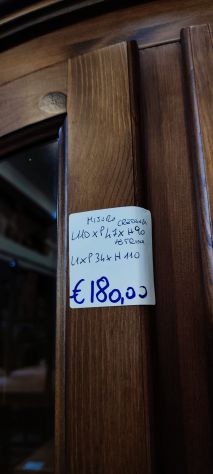 MISURE
CREDENZA
L110 x P47 x H90
VETRINA
L1 x P34 x H 110
€180,00